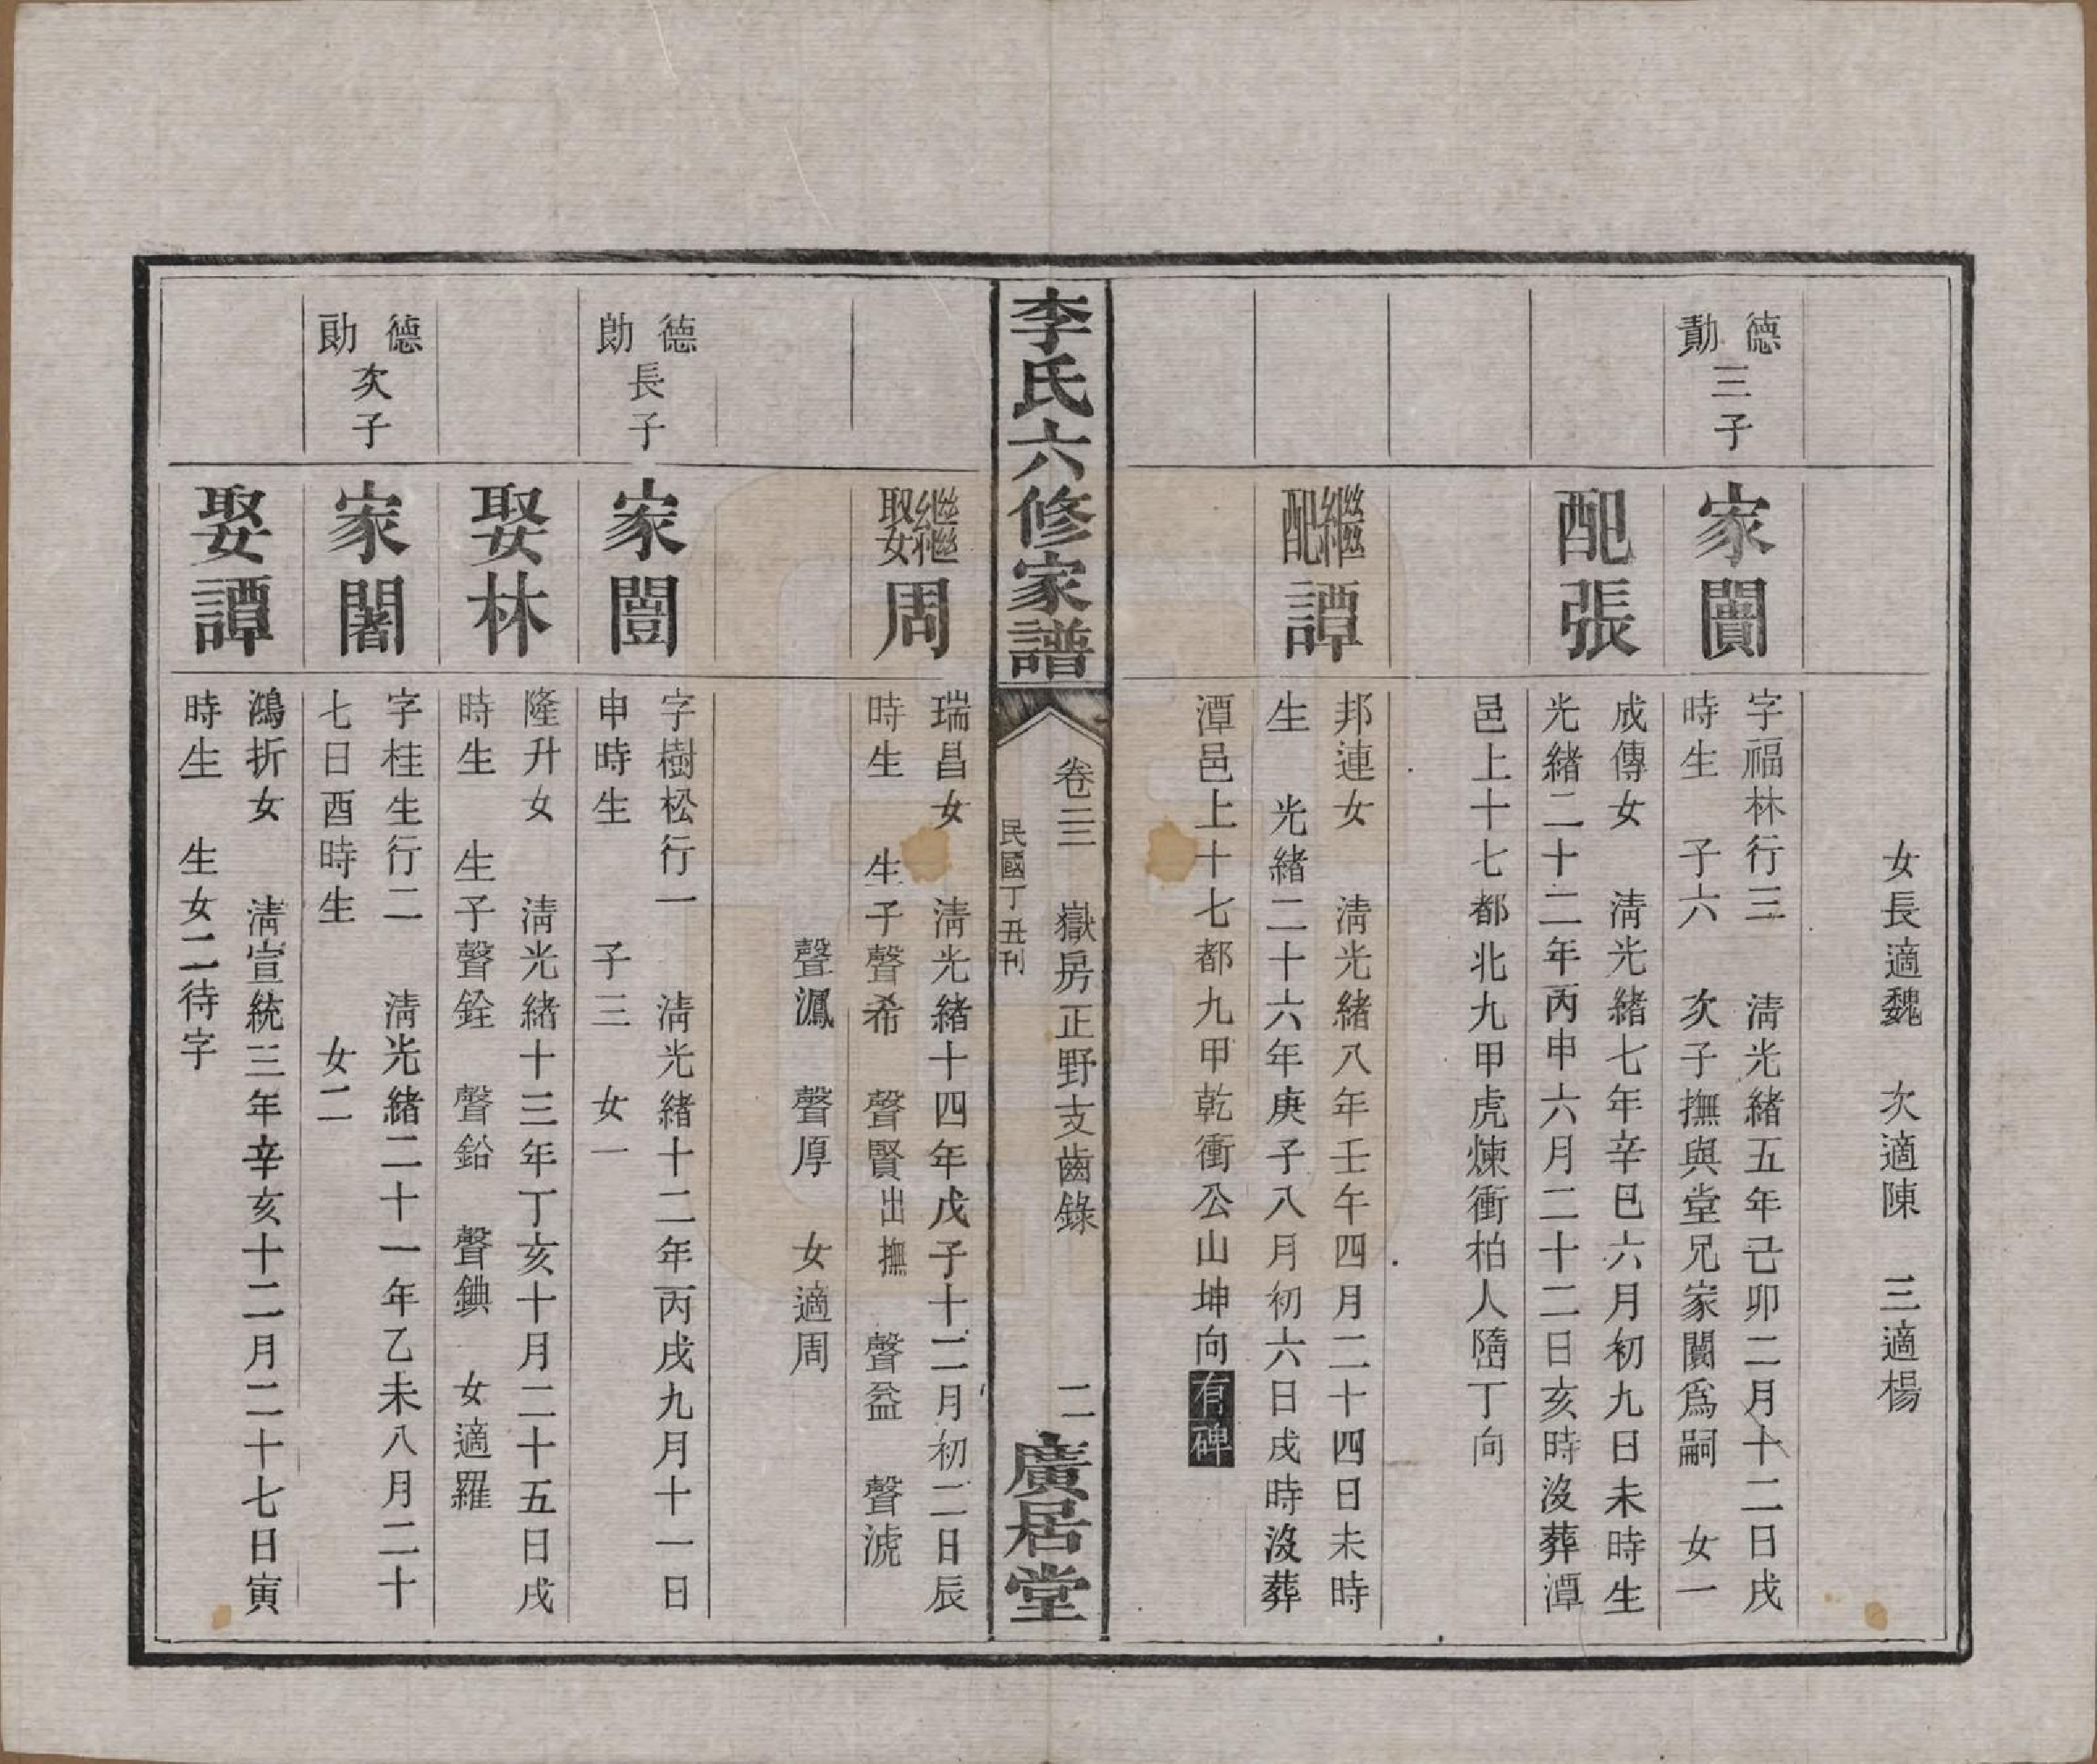 女長適魏　次適陳　三適楊
德勣三子
家闠
字福林行三　清光緒五年己卯二月十二日戌
時生　子六　次子撫與堂兄家闤爲嗣　女一
配張
成傳女　清光緒七年辛巳六月初九日未時生
光緒二十二年丙申六月二十二日亥時沒葬潭
邑上十七都北九甲虎煉衝柏人隯丁向
繼配譚
邦連女　清光緒八年壬午四月二十四日未時
生　光緒二十六年庚子八月初六日戌時沒葬
潭邑上十七都九甲乾衝公山坤向有碑
李氏六修家譜
卷三三　嶽房正野支齒錄　二
民國丁丑刊
廣居堂
繼娶周
瑞昌女　清光緒十四年戊子十二月初二日辰
時生　生子聲希　聲賢出撫　聲益　聲淲
聲渢　聲厚　女適周
德勛長子
家闓
字樹松行一　清光緒十二年丙戌九月十一日
申時生　子三　女一
娶林
隆升女　清光緒十三年丁亥十月二十五日戌
時生　生子聲銓　聲鉛　聲錪　女適羅
德勛次子
家闍
字桂生行二　清光緒二十一年乙未八月二十
七日酉時生　女二
娶譚
鴻折女　清宣統三年辛亥十二月二十七日寅
時生　生女二待字